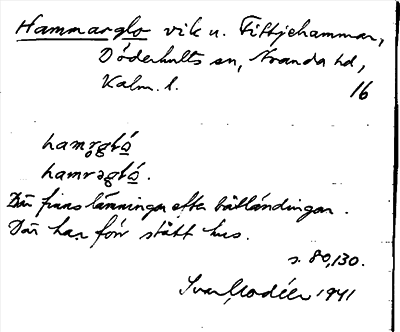 Hammarglo vik u. Fittjehammar,
Döderhults sn, Stranda hd,
Kalm. l. 16
hamrgló
hamrəgló.
Där finns lämningar efter båtländingar.
Där har förr stått hus.
s. 80, 130.
Ivar Modéer 1941